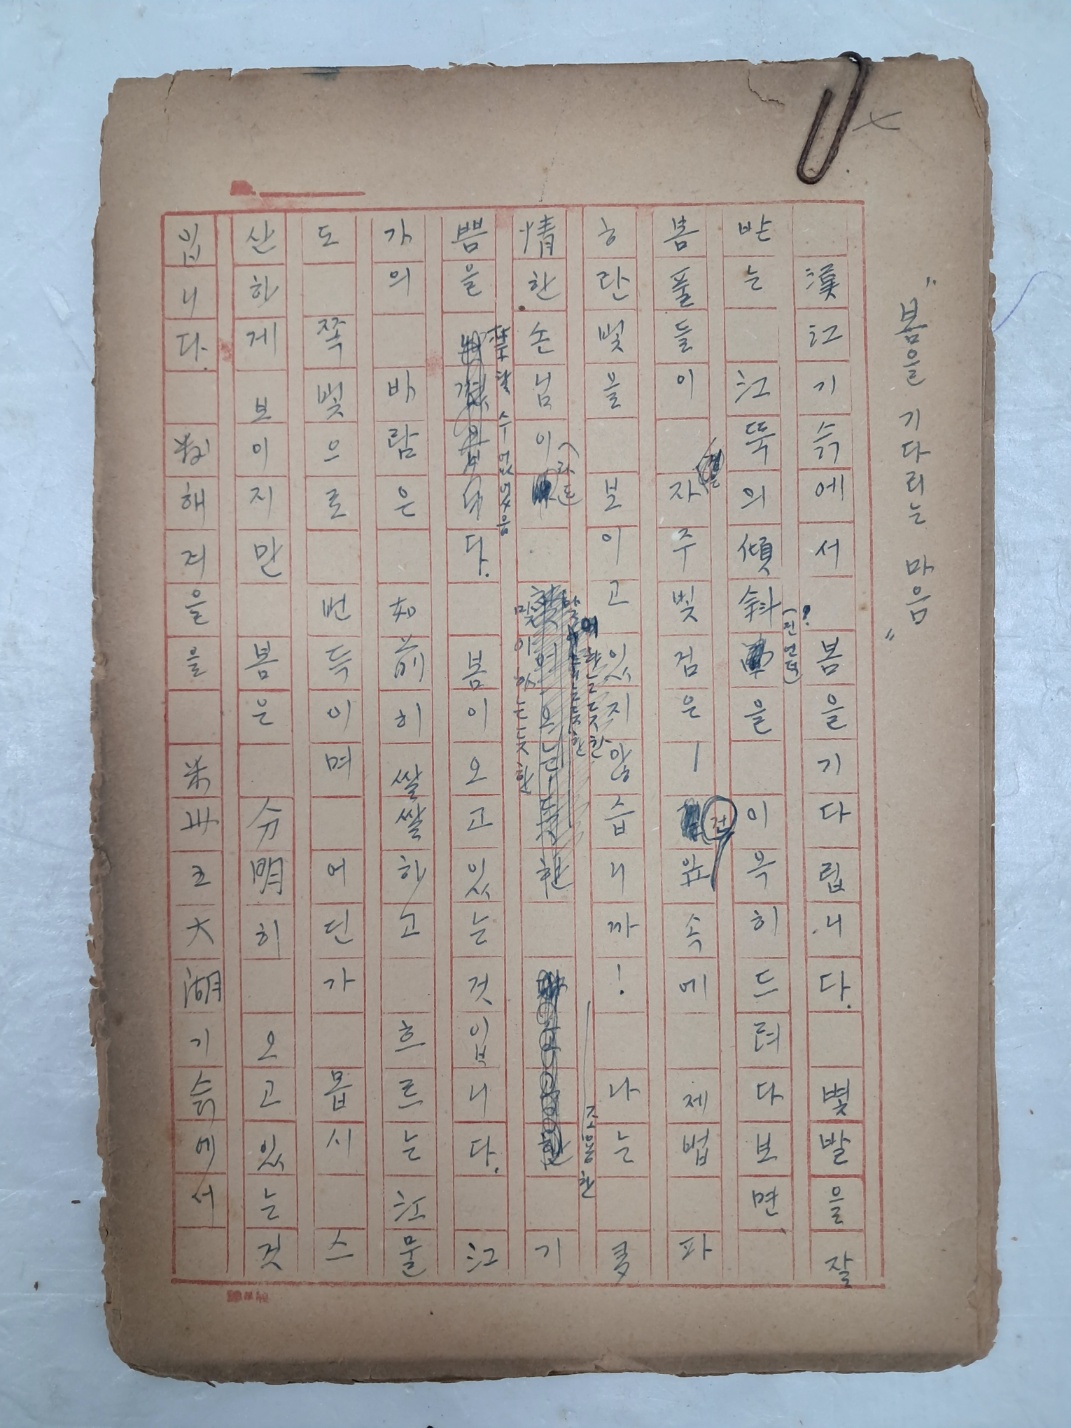 "봄을 기다리는 마음"
漢江기슭에서 봄을기다립니다. 볓발을 잘
받는 江뚝의傾斜을 이윽히드려다보면,
(진언덕)?
봄풀들이 자주빛검은ㅣ 속에 제법 파
ㅎ란빛을 보이고있지않습니까! 나는 多
情한손님이 기
(라는
조용한
맞이하는듯한
쁨을 다. 봄이오고있는것입니다. 江
할 수 없었음
가의 바람은 如前히쌀쌀하고 흐르는江물
도 쪽빛으로 번득이며 어딘가 몹시 스
산하게 보이지만 봄은 分明히 오고있는것
입니다. 해겨을을 米洲五大湖기슭에서